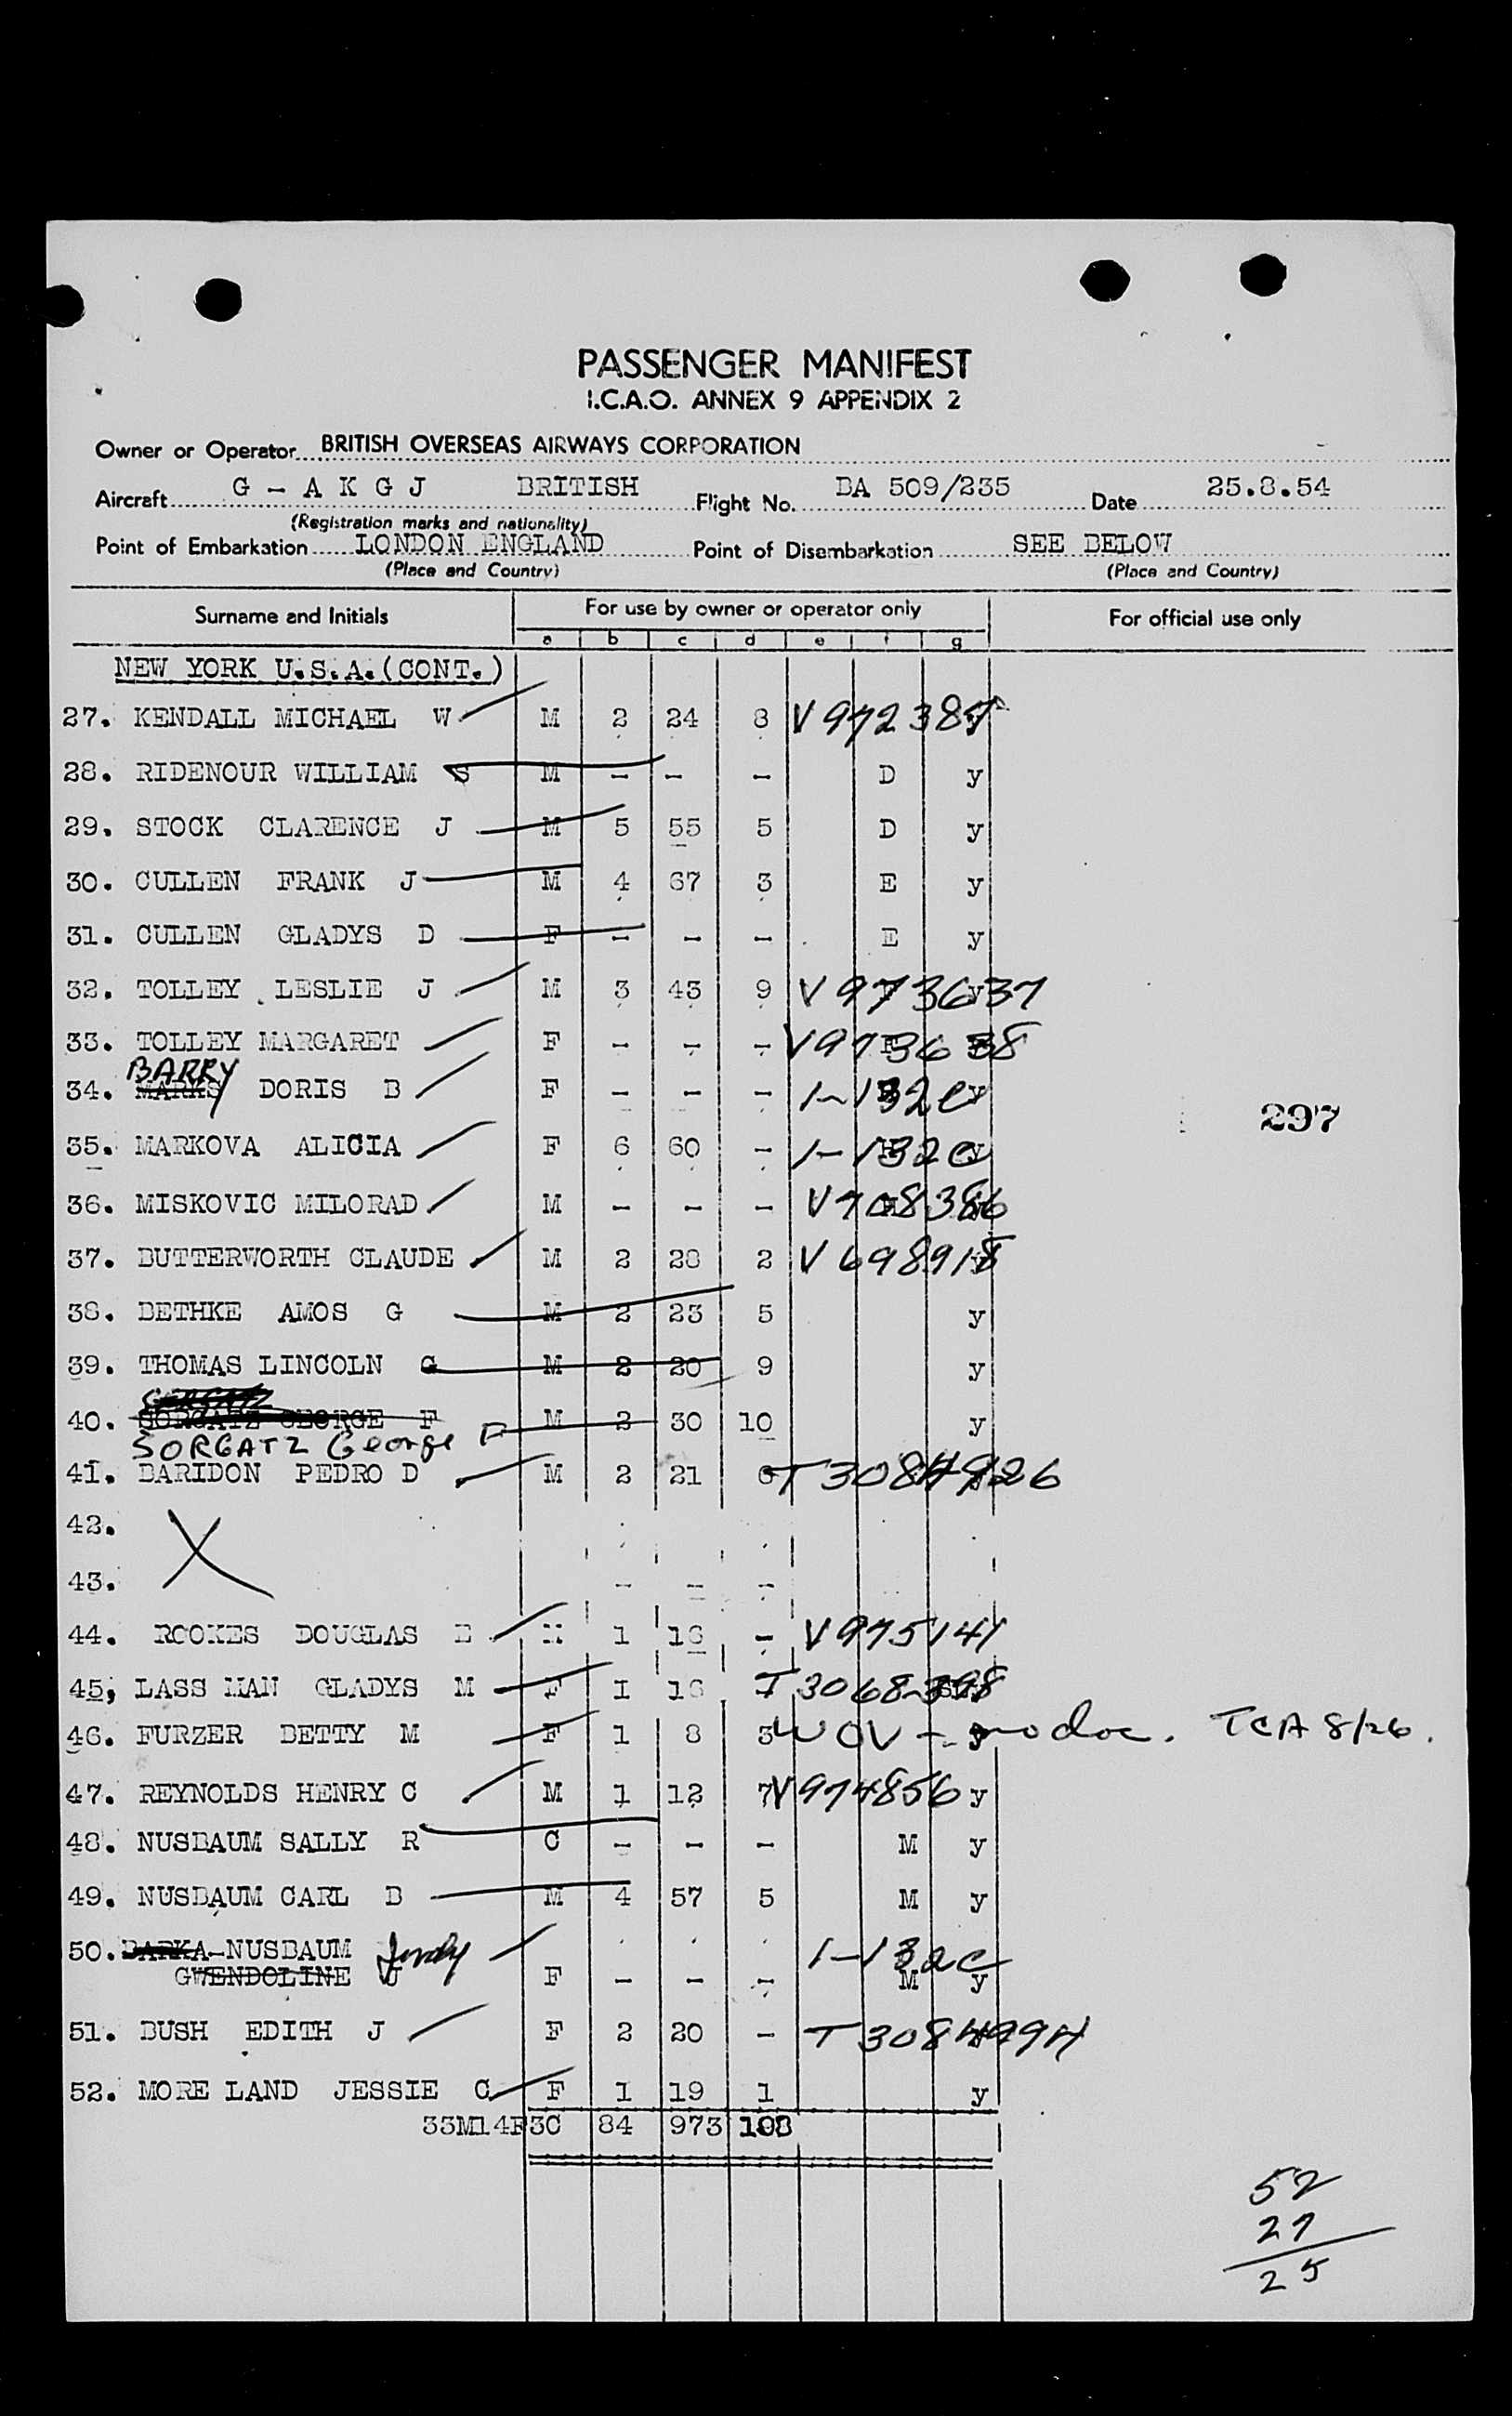 PASSENGER MANIFEST
I.C.A.O. ANNEX 9 APPENDIX 2
Owner or Operator BRITISH OVERSEAS AIRWAYS CORPORATION
Aircraft G - A K G J BRITISH Flight No. BA 509/235 Date 25.8.54
(Registration marks and nationality)
Point of Embarkation LONDON ENGLAND Point of Disembarkation SEE BELOW
(Place and Country) (Place and Country)
Surname and Initials For use by owner or operator only For official use only
a b c d e f g
NEW YORK U.S.A.(CONT.)
27. KENDALL MICHAEL W M 2 24 8 V972385
28. RIDENOUR WILLIAM S M - - - D y
29. STOCK CLARENCE J M 5 55 5 D y
30. CULLEN FRANK J M 4 67 3 E y
31. CULLEN GLADYS D F - - - E y
32. TOLLEY LESLIE J M 3 43 9 V973637
33. TOLLEY MARGARET F - - - V973638
BARRY
34. MARKS DORIS B F - - - 1-132c y
297
35. MARKOVA ALICIA F 6 60 - 1-132c y
36. MISKOVIC MILORAD M - - - V708386
37. BUTTERWORTH CLAUDE M 2 28 2 V698918
38. BETHKE AMOS G M 2 23 5 y
39. THOMAS LINCOLN G M 2 20 9 y
40. SORGATZ GEORGE F M 2 30 10 y
SORGATZ George F
41. BARIDON PEDRO D M 2 21 6 T3084926
42. X
43. - - -
44. ROOKES DOUGLAS E M 1 16 - V975141
45, LASS MAN GLADYS M F I 16 T3068398
46. FURZER BETTY M F 1 8 3 WOV - no doc. TCA 8/26.
47. REYNOLDS HENRY C M 1 12 7 V974856 y
48. NUSBAUM SALLY R C - - - M y
49. NUSBAUM CARL B M 4 57 5 M y
50. BARKA-NUSBAUM Judy 1-132c
GWENDOLINE J F - - - M y
51. BUSH EDITH J F 2 20 - T3084994
52. MORE LAND JESSIE C F I 19 1 y
33M14F3C 84 973 108
52
27
25